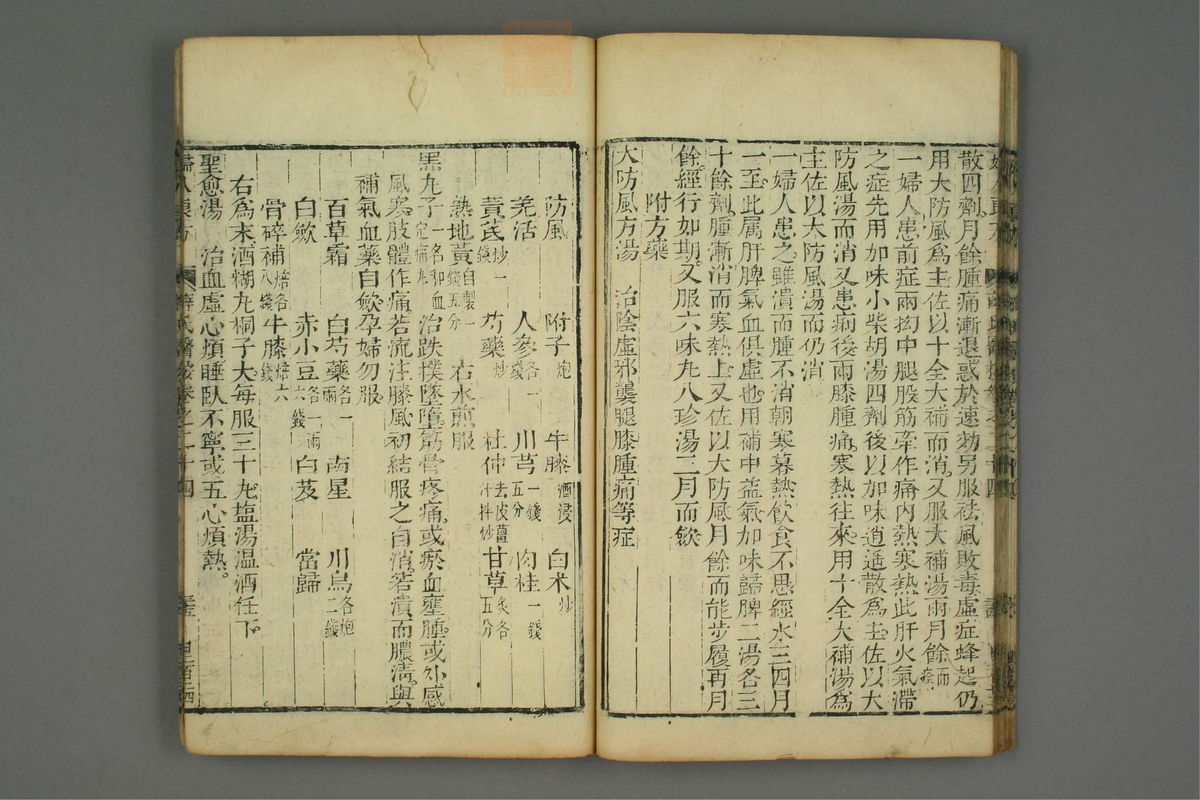 散四劑月餘腫痛漸退惑於速効另服祛風敗毒虛症蜂起仍
用大防風為主佐以十全大補而消又服大補湯兩月餘而痊
一婦人患前症兩拗中腿股筋牽作痛內熱寒熱此肝火氣滯
之症先用加味小柴胡湯四劑後以加味逍遥散為主佐以大
防風湯而消又患痢後兩膝腫痛寒熱往來用十全大補湯為
主佐以大防風湯而仍消
一婦人患之雖潰而腫不消朝寒暮熱飲食不思經水三四月
一至此属肝脾氣血俱虛也用補中益氣加味歸脾二湯各三
十餘劑腫漸消而寒熱止又佐以大防風月餘而能步履再月
餘經行如期又服六味丸八珍湯三月而歛
附方藥
大防風方湯 治陰虛邪襲腿膝腫痛等症
防風 附子炮 牛膝酒浸 白术炒
羌活 人參各一錢 川芎一錢五分 肉桂一錢
黃芪炒一錢 芍藥炒 杜仲去皮薑汁拌炒 甘草炙各五分
熟地黃自製一錢五分 右水煎服
黑丸子一名和血定痛丸 治跌撲墜墮筋骨疼痛或瘀血壅腫或外感
風寒肢體作痛若流注膝風初結服之自消若潰而膿淸與
補氣血藥自歛孕婦勿服
百草霜 白芍藥各一兩 南星 川烏各炮二錢
白歛 赤小豆各一兩六錢 白芨 當歸
骨碎補焙各八錢 牛膝焙六錢
右為末酒糊丸桐子大每服三十丸塩湯温酒任下
聖愈湯 治血虛心煩睡臥不寧或五心煩熱